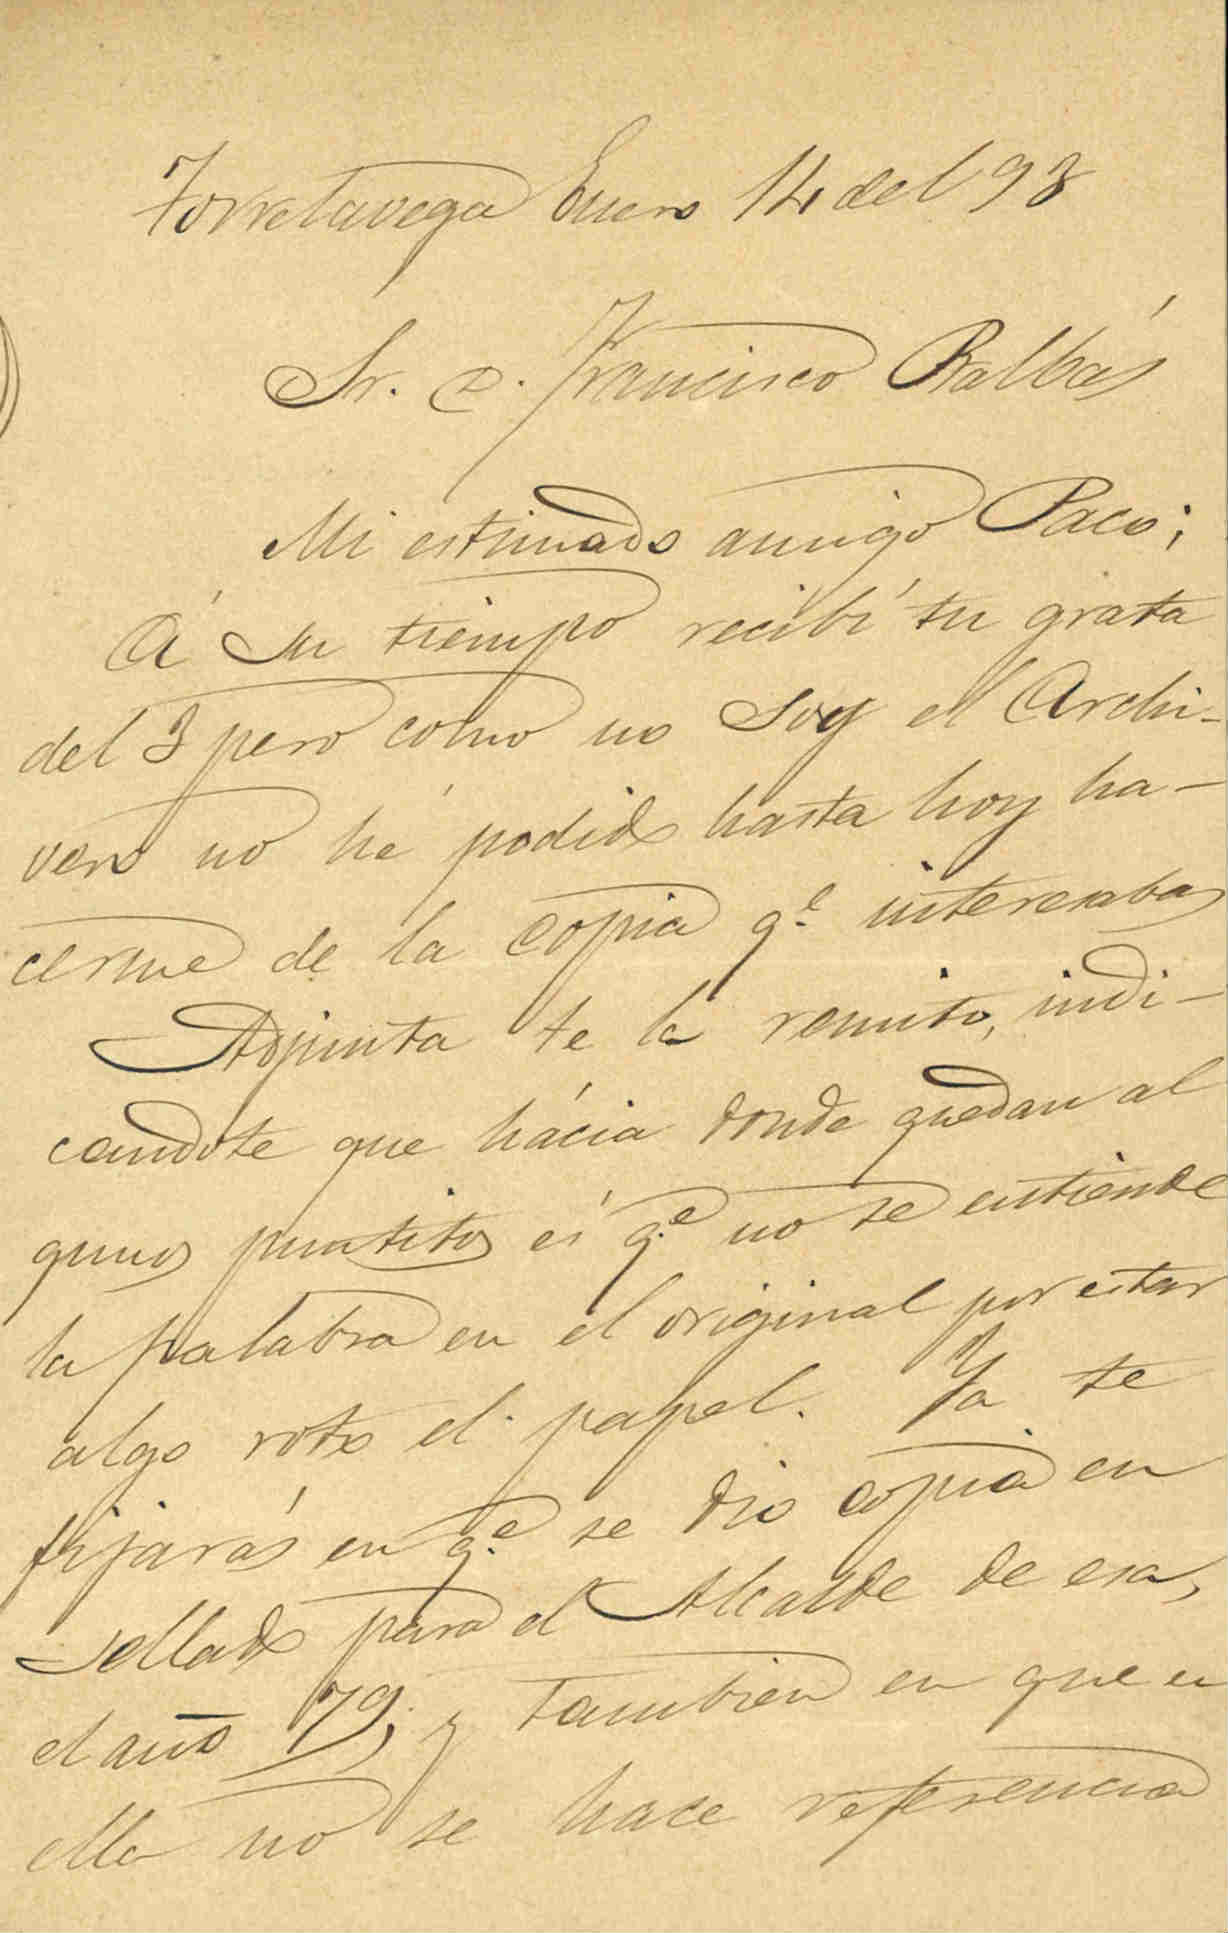 Torrelavega Enero 14 del 93
Sr. D. Francisco Balbás
Mi estimado amigo Paco;
Á su tiempo recibí tu grata
del 3 pero como no soy el Archi-
vero no hé podido hasta hoy ha-
cerme de la copia q.e interesabas
Adjunta te la remito, indi-
candote que hácia donde quedan al
gunos puntitos es q.e no se entiende
la palabra en el original por estar
algo roto el papel. Ya te
fijarás en q.e se dio copia en
sellado para el Alcalde de esa,
el año 79; y tambien en que en
ella no se hace referencia